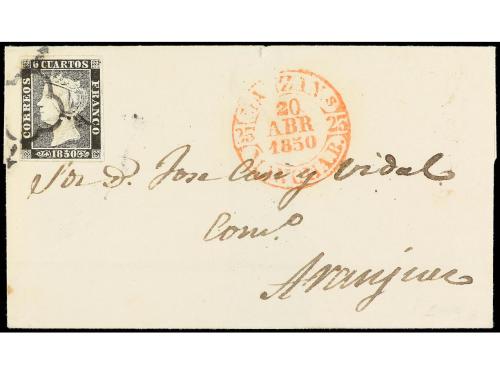 6 CUARTOS
CORREOS
FRANCO
1850
20
ABR
1850
Sor Dn. Jose Can y Vidal
Como.
Aranjuez